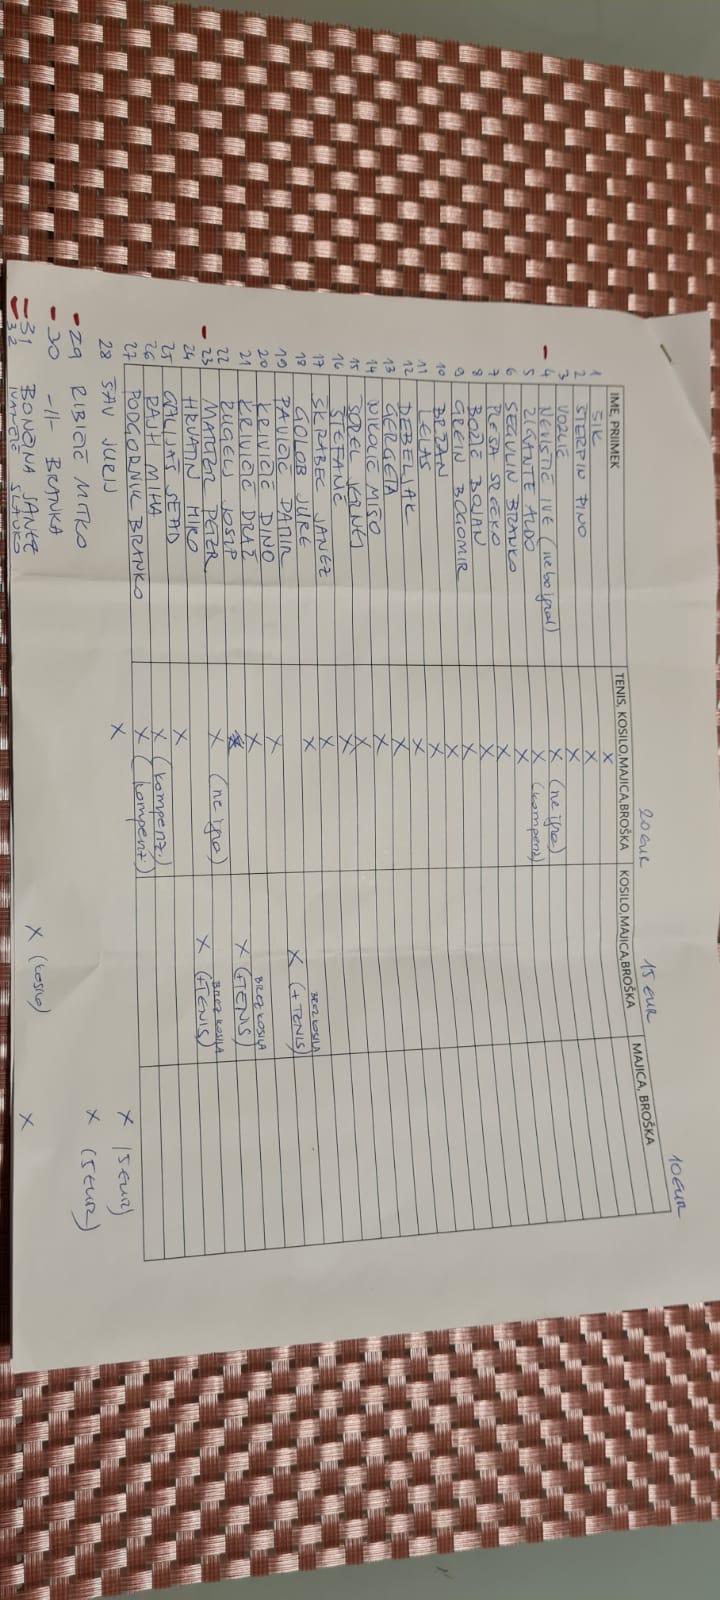 20 EUR 15 EUR 10 EUR
IME, PRIIMEK TENIS, KOSILO,MAJICA,BROŠKA KOSILO,MAJICA,BROŠKA MAJICA, BROŠKA
1 ŠIK X
2 STERPIN PINO X
3 VOZLIČ X
4 NEVISTIĆ IVE (ne bo igral) X (ne igra)
5 ZIGANTE ALDO X (kompenz)
6 SEGULIN BRANKO X
7 PLESA SREČKO X
8 BOŽIČ BOJAN X
9 GREIN BOGOMIR X
10 BRZAN X
11 LELAS X
12 DEBELJAK X
13 GERGETA X
14 NIKOLIĆ MIŠO X
15 SODEL KORNEJ X
16 ŠTEFANČ X
17 ŠKRABEC JANEZ X
18 GOLOB JURE X
19 PAVIČIĆ DAMIR X (+TENIS) BREZ KOSILA
20 KRIVIČIĆ DINO X
21 KRIVIČIĆ DRAŽ X
22 RUGELJ JOSIP X (+TENIS) BREZ KOSILA
23 MATGER PETER X (ne igra)
24 HRVATIN MIRO X (+TENIS) BREZ KOSILA
25 GALIJAŠ SEAD X
26 RAJH MIHA X (kompenz.)
27 PODGORNIK BRANKO X (kompenz.)
28 ŠAV JURIJ X
29 RIBIČIČ MITKO X (5 EUR)
30 -11- BRANKA X (5 EUR)
31 BONČINA JANEZ
32 SLAVKO X (kosilo) X